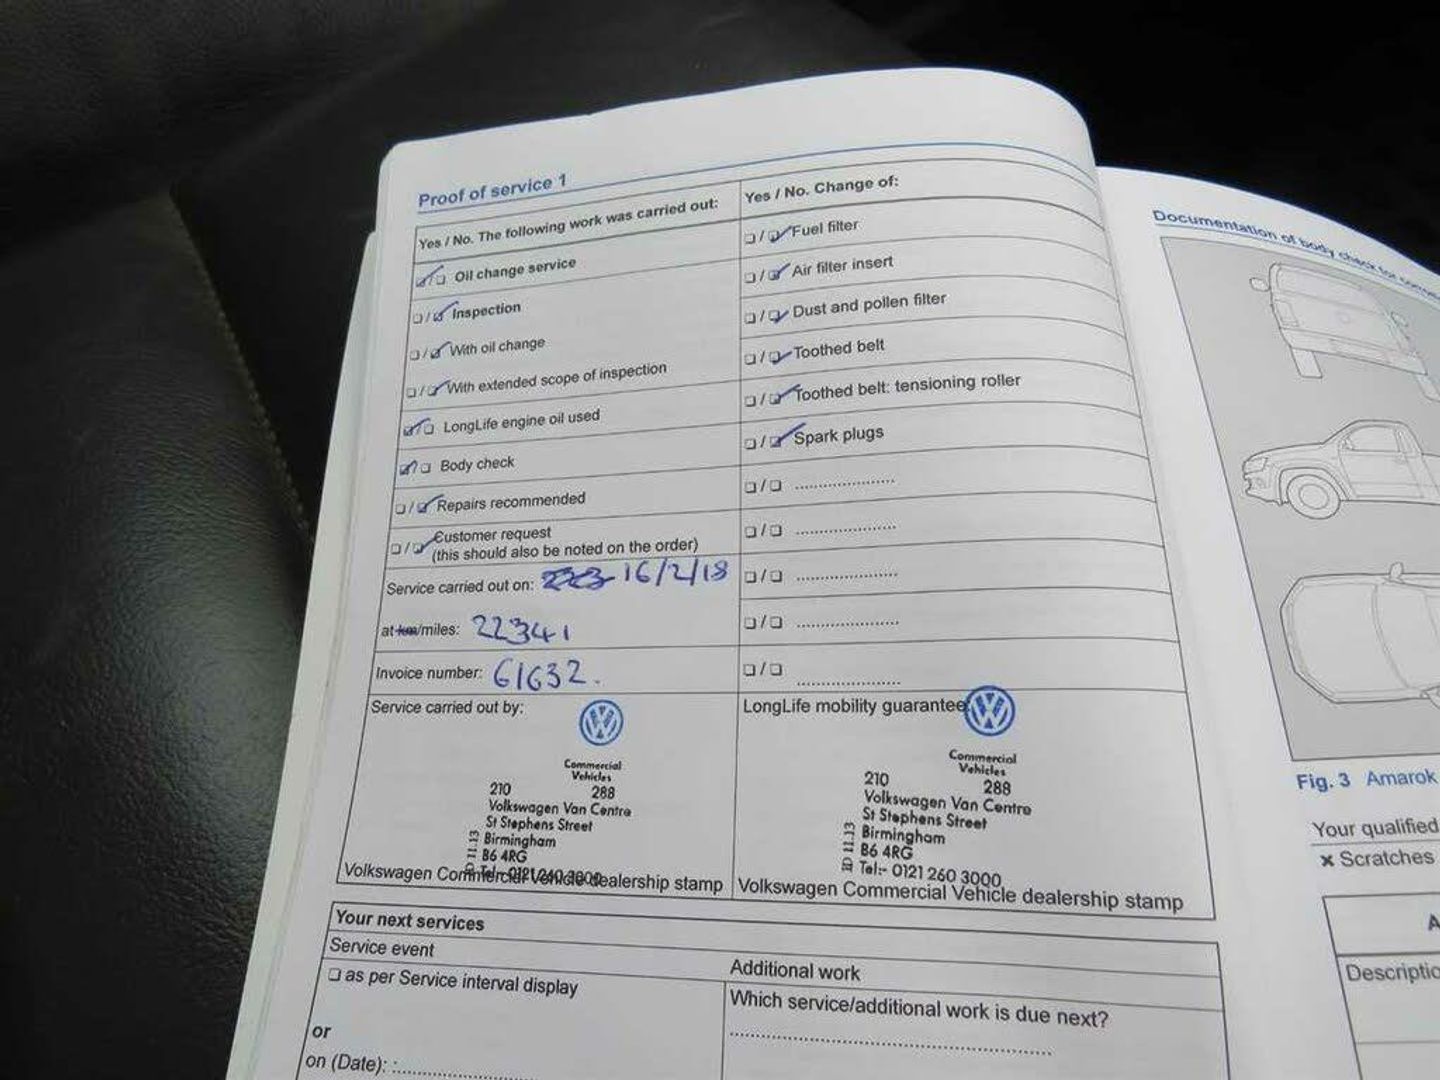 Proof of service 1
Yes / No. The following work was carried out:
☑/☐ Oil change service
☐/☑ Inspection
☐/☑ With oil change
☐/☑ With extended scope of inspection
☑/☐ LongLife engine oil used
☑/☐ Body check
☐/☑ Repairs recommended
☐/☑ Customer request
(this should also be noted on the order)
Service carried out on: 16/2/18
at km/miles: 22341
Invoice number: 61632.
Service carried out by:
Commercial
Vehicles
210 288
Volkswagen Van Centre
St Stephens Street
Birmingham
B6 4RG
Tel:- 0121 260 3000
Volkswagen Commercial Vehicle dealership stamp
Yes / No. Change of:
☐/☑ Fuel filter
☐/☑ Air filter insert
☐/☑ Dust and pollen filter
☐/☑ Toothed belt
☐/☑ Toothed belt: tensioning roller
☐/☑ Spark plugs
☐/☐ ....................
☐/☐ ....................
☐/☐ ....................
☐/☐ ....................
☐/☐ ....................
LongLife mobility guarantee
Commercial
Vehicles
210 288
Volkswagen Van Centre
St Stephens Street
Birmingham
B6 4RG
Tel:- 0121 260 3000
Volkswagen Commercial Vehicle dealership stamp
Your next services
Service event
☐ as per Service interval display
or
on (Date):
Additional work
Which service/additional work is due next?
Documentation of body check for
Fig. 3 Amarok
Your qualified
× Scratches
A